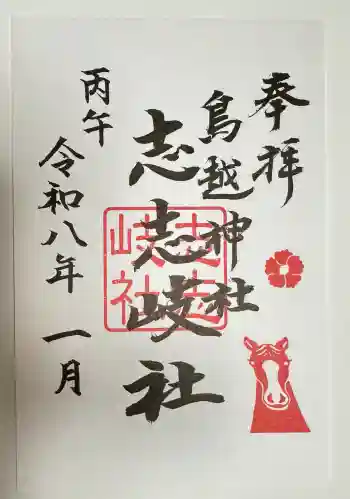 奉拝
鳥越神社
志志岐社
志志岐社
丙午
令和八年 一月